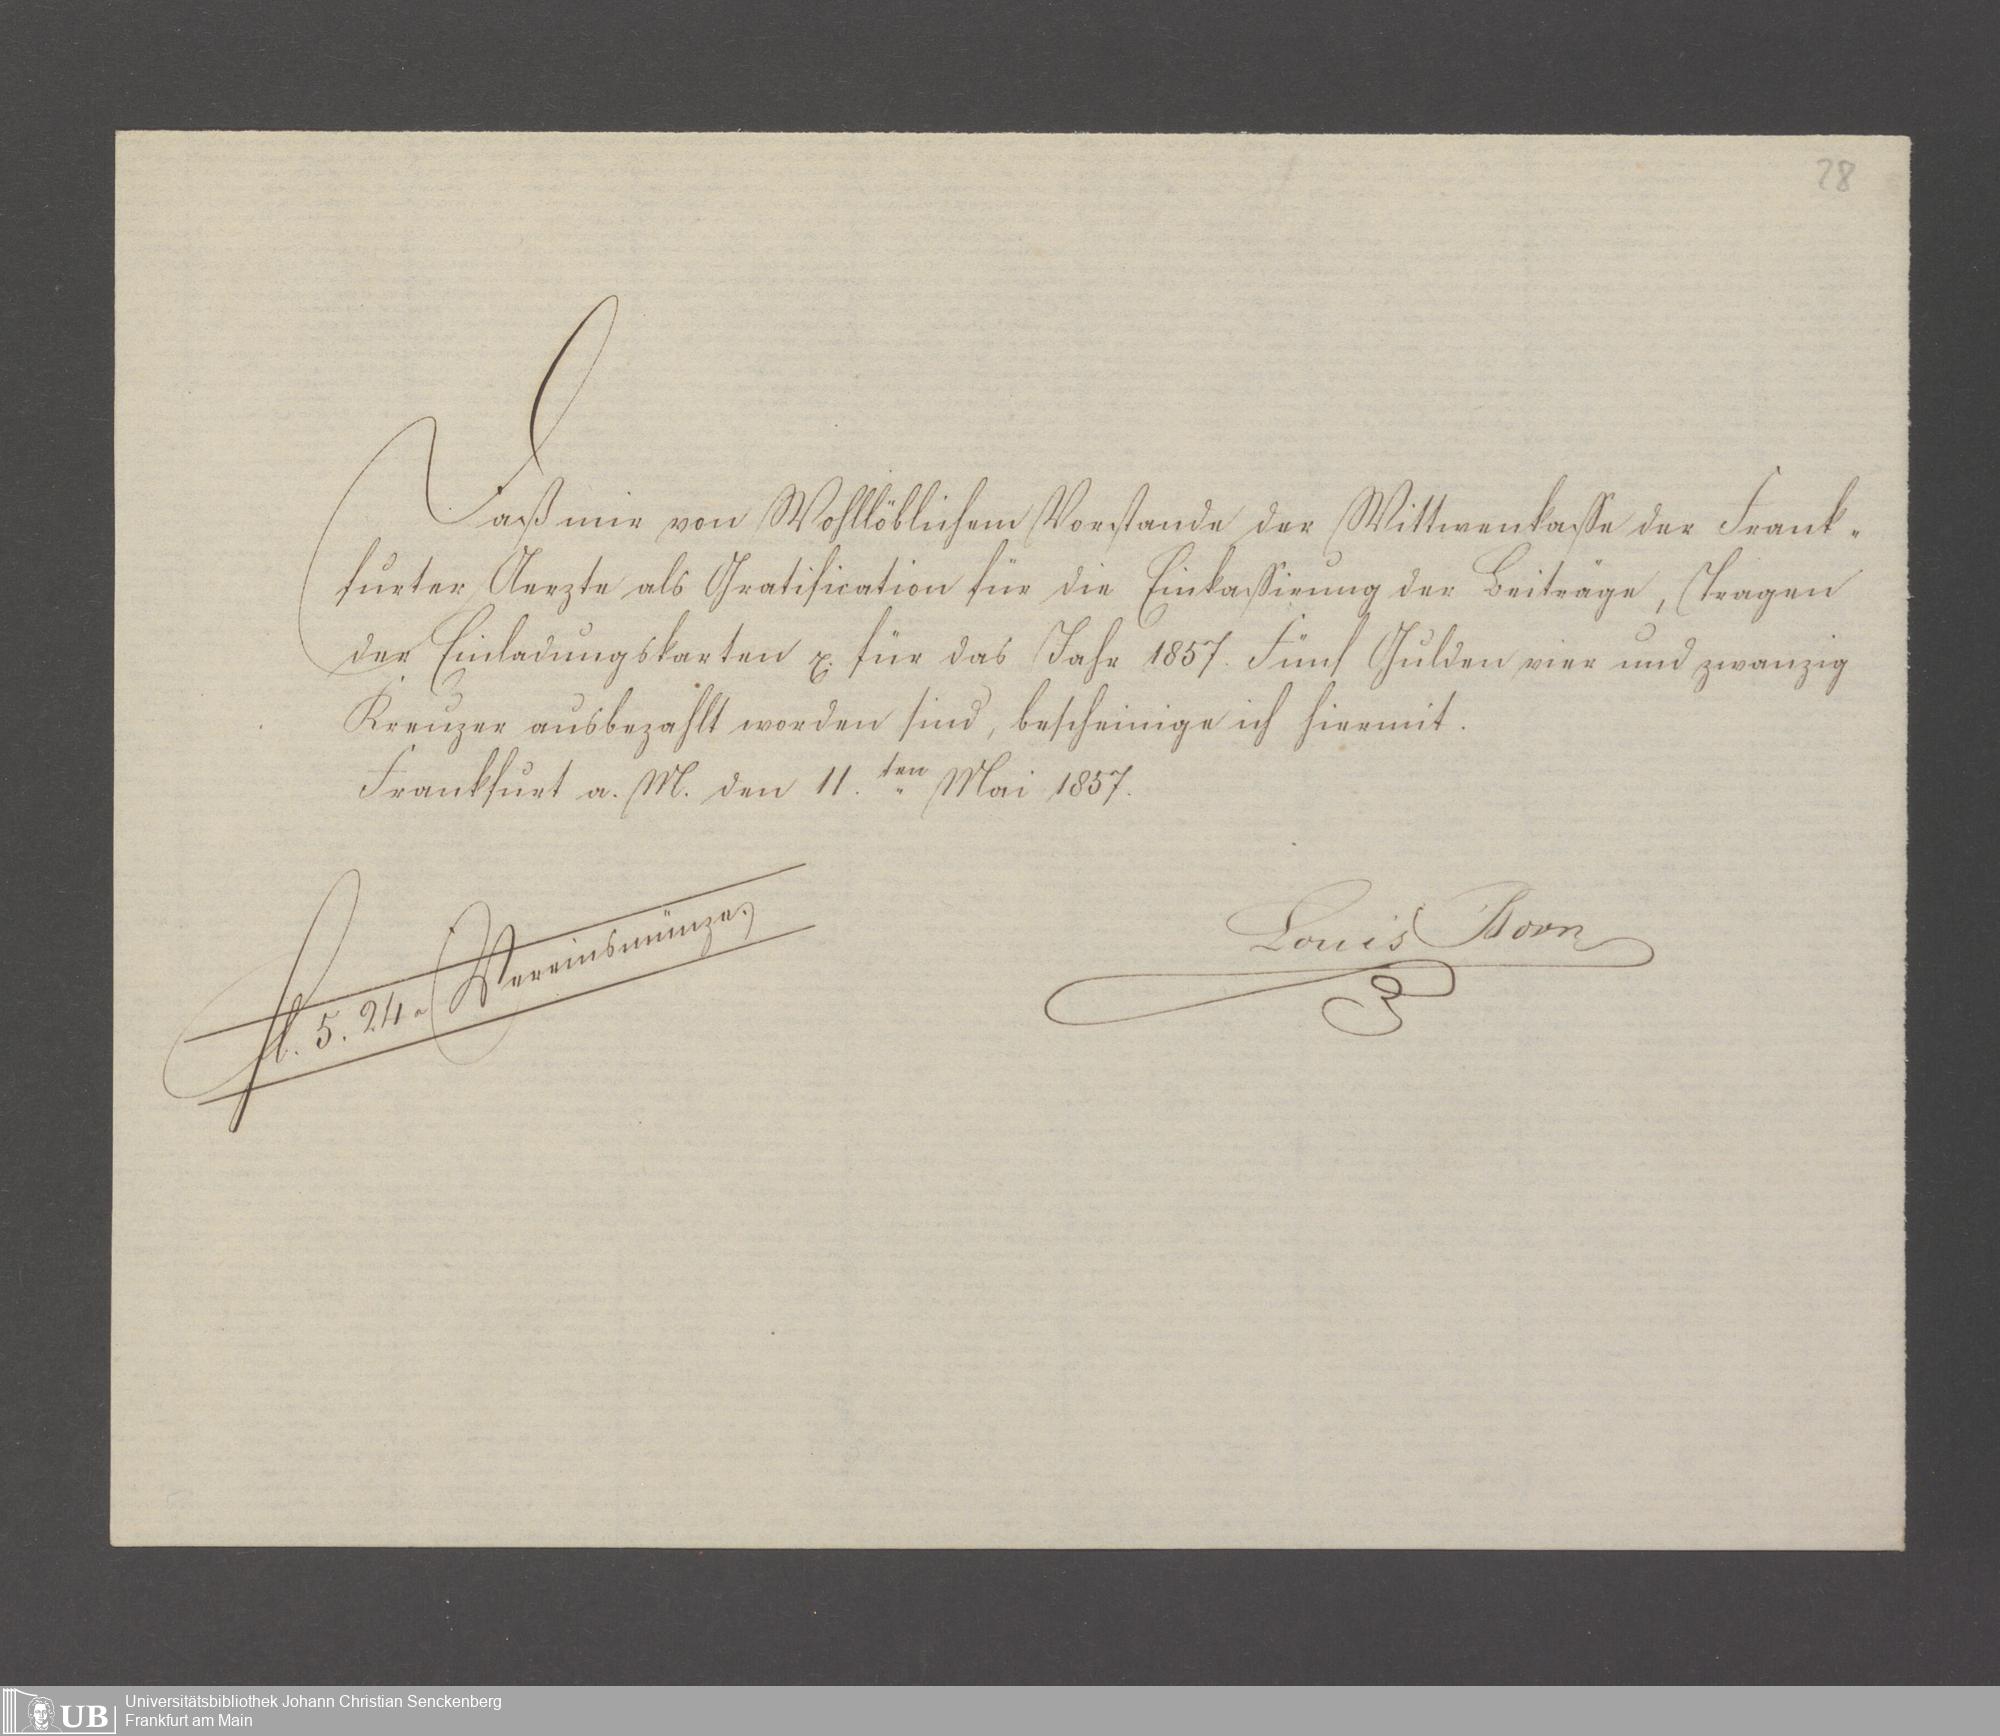 28
Daß mir von Wohllöblichem Vorstande der Wittwenkasse der Frank-
furter Aerzte als Gratification für die Einkassirung der Beiträge, Tragen
der Einladungskarten x. für das Jahr 1857. Fünf Gulden vier und zwanzig
Kreuzer ausbezahlt worden sind, bescheinige ich hiermit.
Frankfurt a. M. den 11.ten Mai 1857.
fl. 5. 24 Vereinsmünze.
Louis Born
Universitätsbibliothek Johann Christian Senckenberg
UB Frankfurt am Main